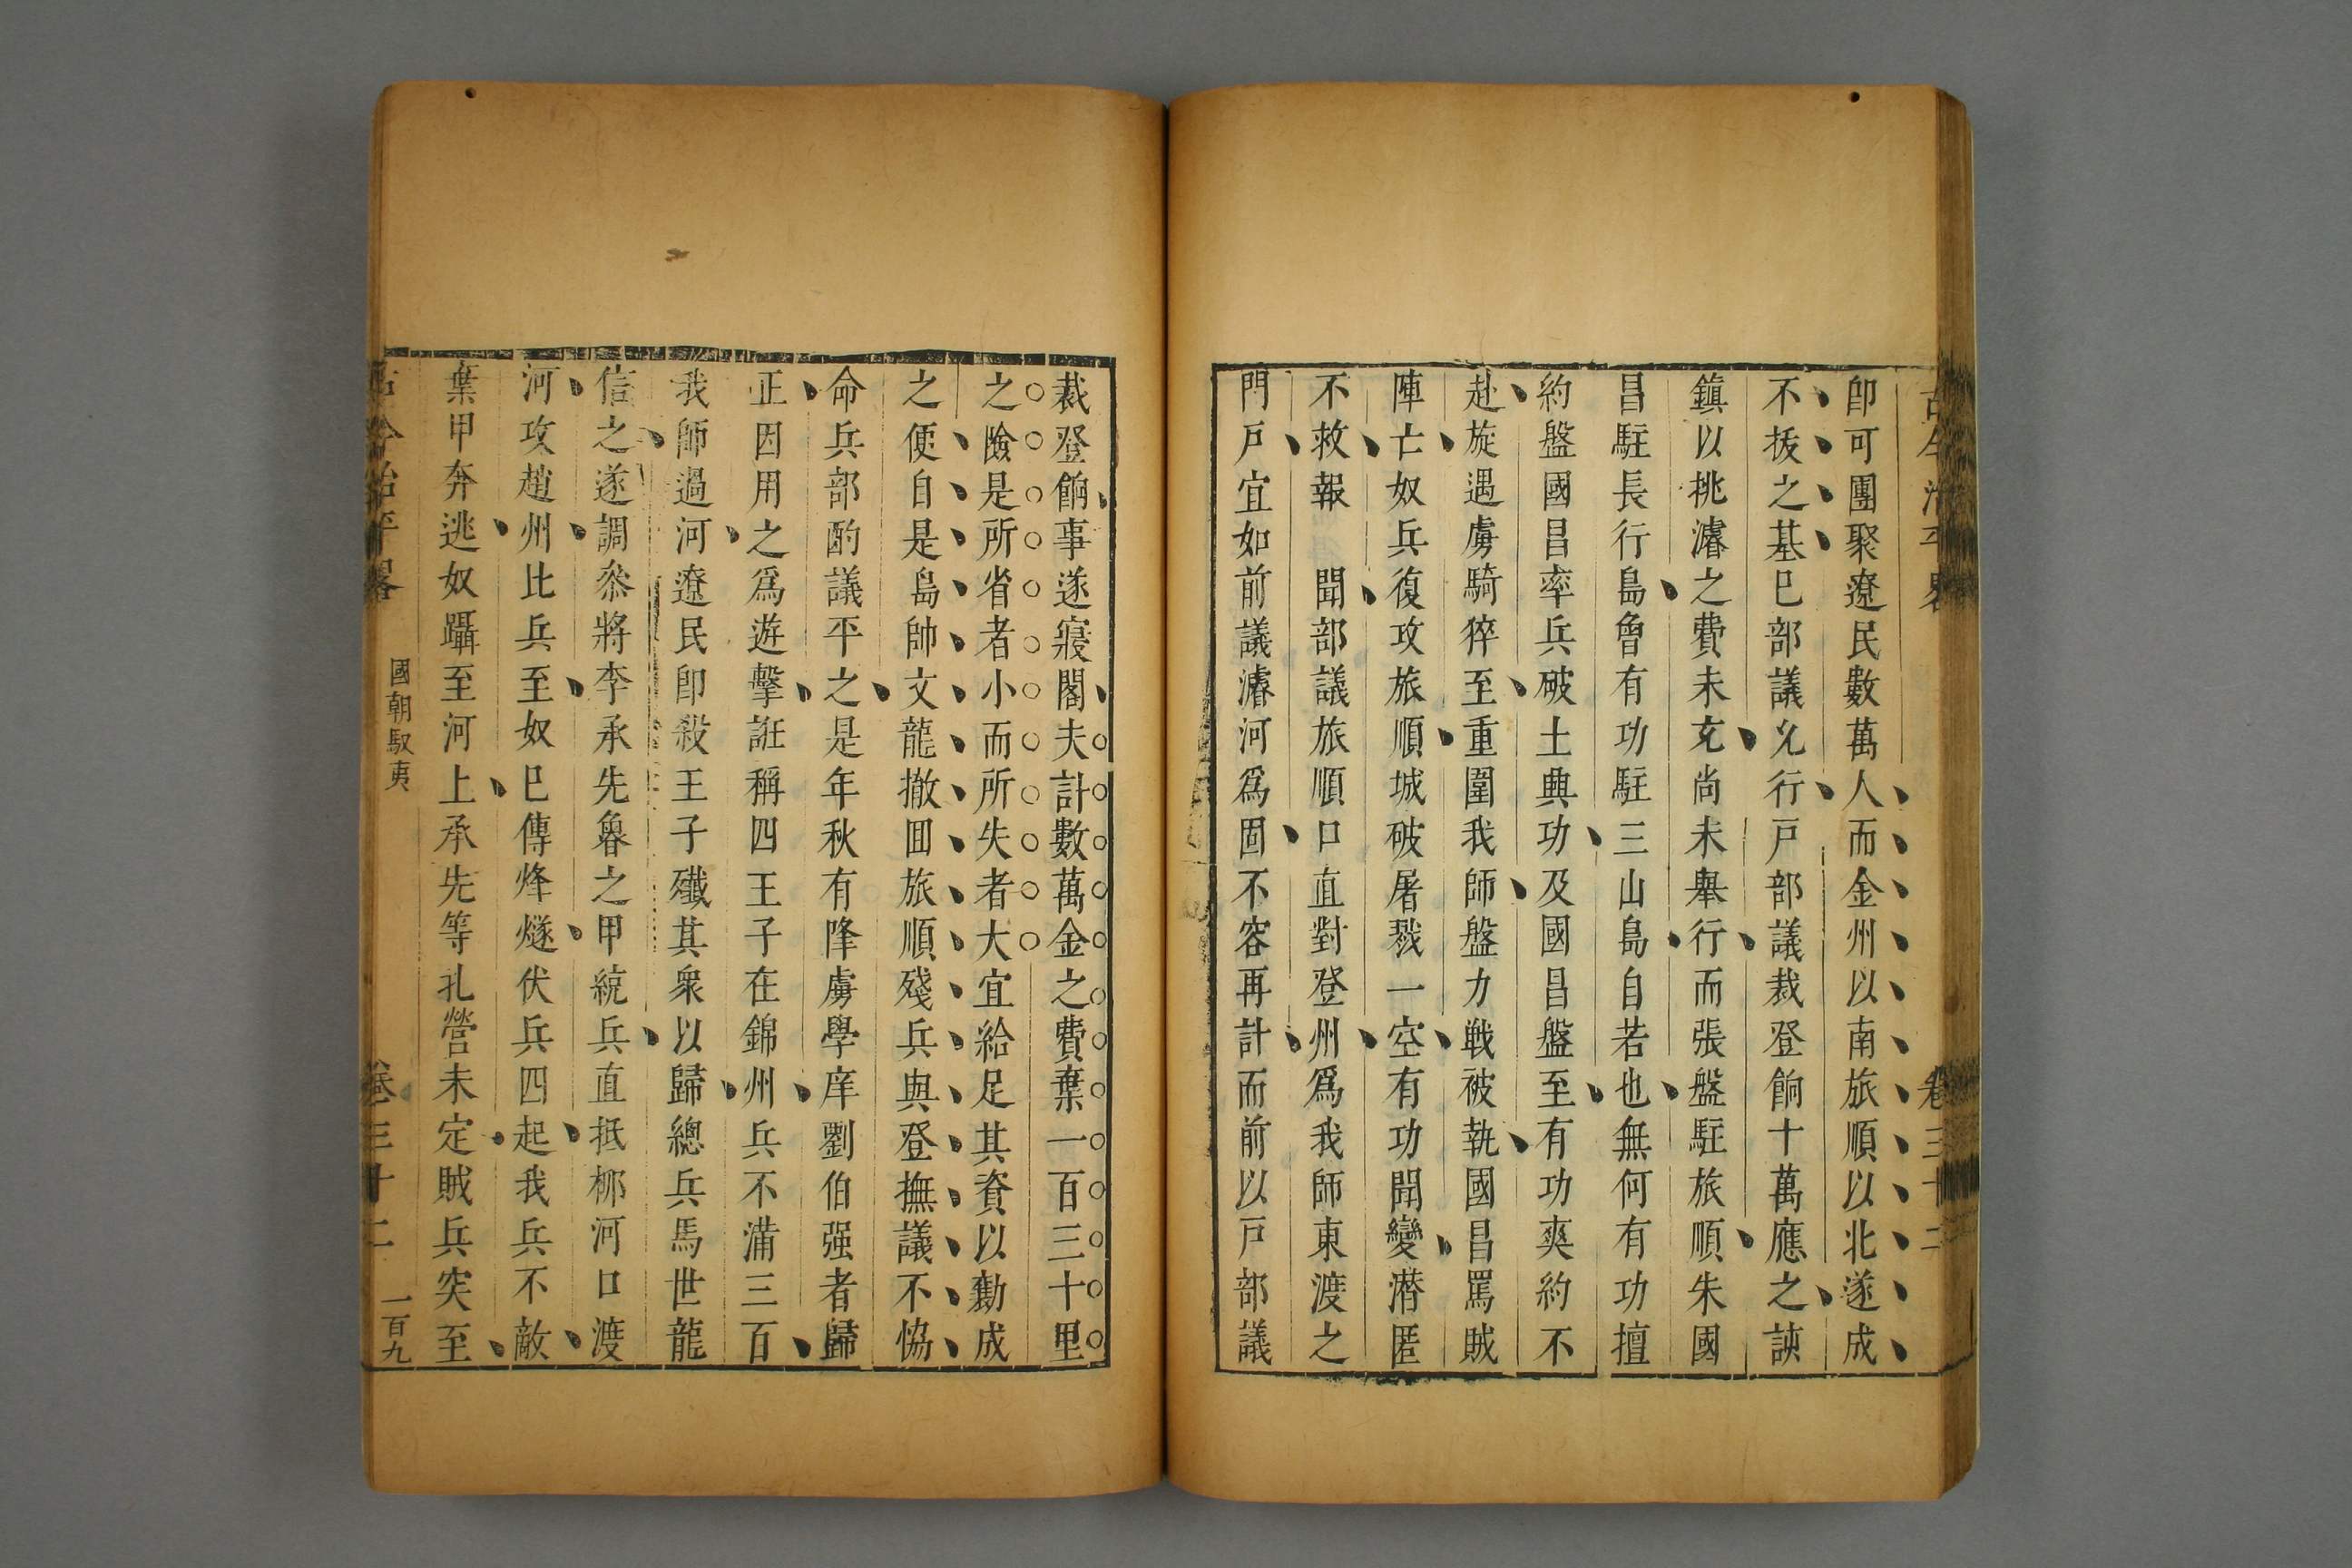 古今治平畧 卷三十二
卽可團聚遼民數萬人而金州以南旅順以北遂成
不拔之基已部議允行戸部議裁登餉十萬應之該
鎮以挑濬之費未充尚未舉行而張盤駐旅順朱國
昌駐長行島曾有功駐三山島自若也無何有功擅
約盤國昌率兵破土興功及國昌盤至有功爽約不
赴旋遇虜騎猝至重圍我師盤力戰被執國昌罵賊
陣亡奴兵復攻旅順城破屠戮一空有功聞變潜匿
不救報　聞部議旅順口直對登州爲我師東渡之
門戸宜如前議濬河爲固不容再計而前以戸部議
裁登餉事遂寢閣夫計數萬金之費棄一百三十里
之險是所省者小而所失者大宜給足其資以勷成
之便自是島帥文龍撤回旅順殘兵與登撫議不恊
命兵部酌議平之是年秋有降虜學庠劉伯强者歸
正因用之爲遊擊誑稱四王子在錦州兵不滿三百
我師過河遼民卽殺王子殲其衆以歸總兵馬世龍
信之遂調叅將李承先魯之甲統兵直抵柳河口渡
河攻趙州比兵至奴已傳烽燧伏兵四起我兵不敵
棄甲奔逃奴躡至河上承先等扎營未定賊兵突至
古今治平畧 國朝馭夷 卷三十二 一百九